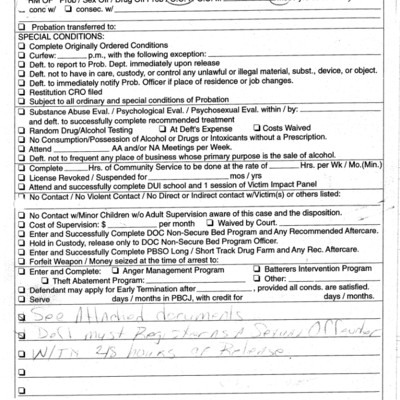 conc w/ ☐ consec w/
☐ Probation transferred to:
SPECIAL CONDITIONS:
☐ Complete Originally Ordered Conditions
☐ Curfew: p.m., with the following exception:
☐ Deft. to report to Prob. Dept. immediately upon release
☐ Deft. not to have in care, custody, or control any unlawful or illegal material, subst., device, or object.
☐ Deft. to immediately notify Prob. Officer if place of residence or job changes.
☐ Restitution CRO filed
☐ Subject to all ordinary and special conditions of Probation
☐ Substance Abuse Eval. / Psychological Eval. / Psychosexual Eval. within / by:
and deft. to successfully complete recommended treatment
☐ Random Drug/Alcohol Testing ☐ At Deft's Expense ☐ Costs Waived
☐ No Consumption/Possession of Alcohol or Drugs or Intoxicants without a Prescription.
☐ Attend AA and/or NA Meetings per Week.
☐ Deft. not to frequent any place of business whose primary purpose is the sale of alcohol.
☐ Complete Hrs. of Community Service to be done at the rate of Hrs. per Wk / Mo.(Min.)
☐ License Revoked / Suspended for mos / yrs
☐ Attend and successfully complete DUI school and 1 session of Victim Impact Panel
☐ No Contact / No Violent Contact / No Direct or Indirect contact w/Victim(s) or others listed:
☐ No Contact w/Minor Children w/o Adult Supervision aware of this case and the disposition.
☐ Cost of Supervision: $ per month ☐ Waived by Court.
☐ Enter and Successfully Complete DOC Non-Secure Bed Program and Any Recommended Aftercare.
☐ Hold in Custody, release only to DOC Non-Secure Bed Program Officer.
☐ Enter and Successfully Complete PBSO Long / Short Track Drug Farm and Any Rec. Aftercare.
☐ Forfeit Weapon / Money seized at the time of arrest to:
☐ Enter and Complete: ☐ Anger Management Program ☐ Batterers Intervention Program
☐ Theft Abatement Program: ☐ Other:
☐ Defendant may apply for Early Termination after , provided all conds. are satisfied.
☐ Serve days / months in PBCJ, with credit for days / months.
See Attached documents
Deft must Register as A Sexual Offender
W/IN 48 hours of Release